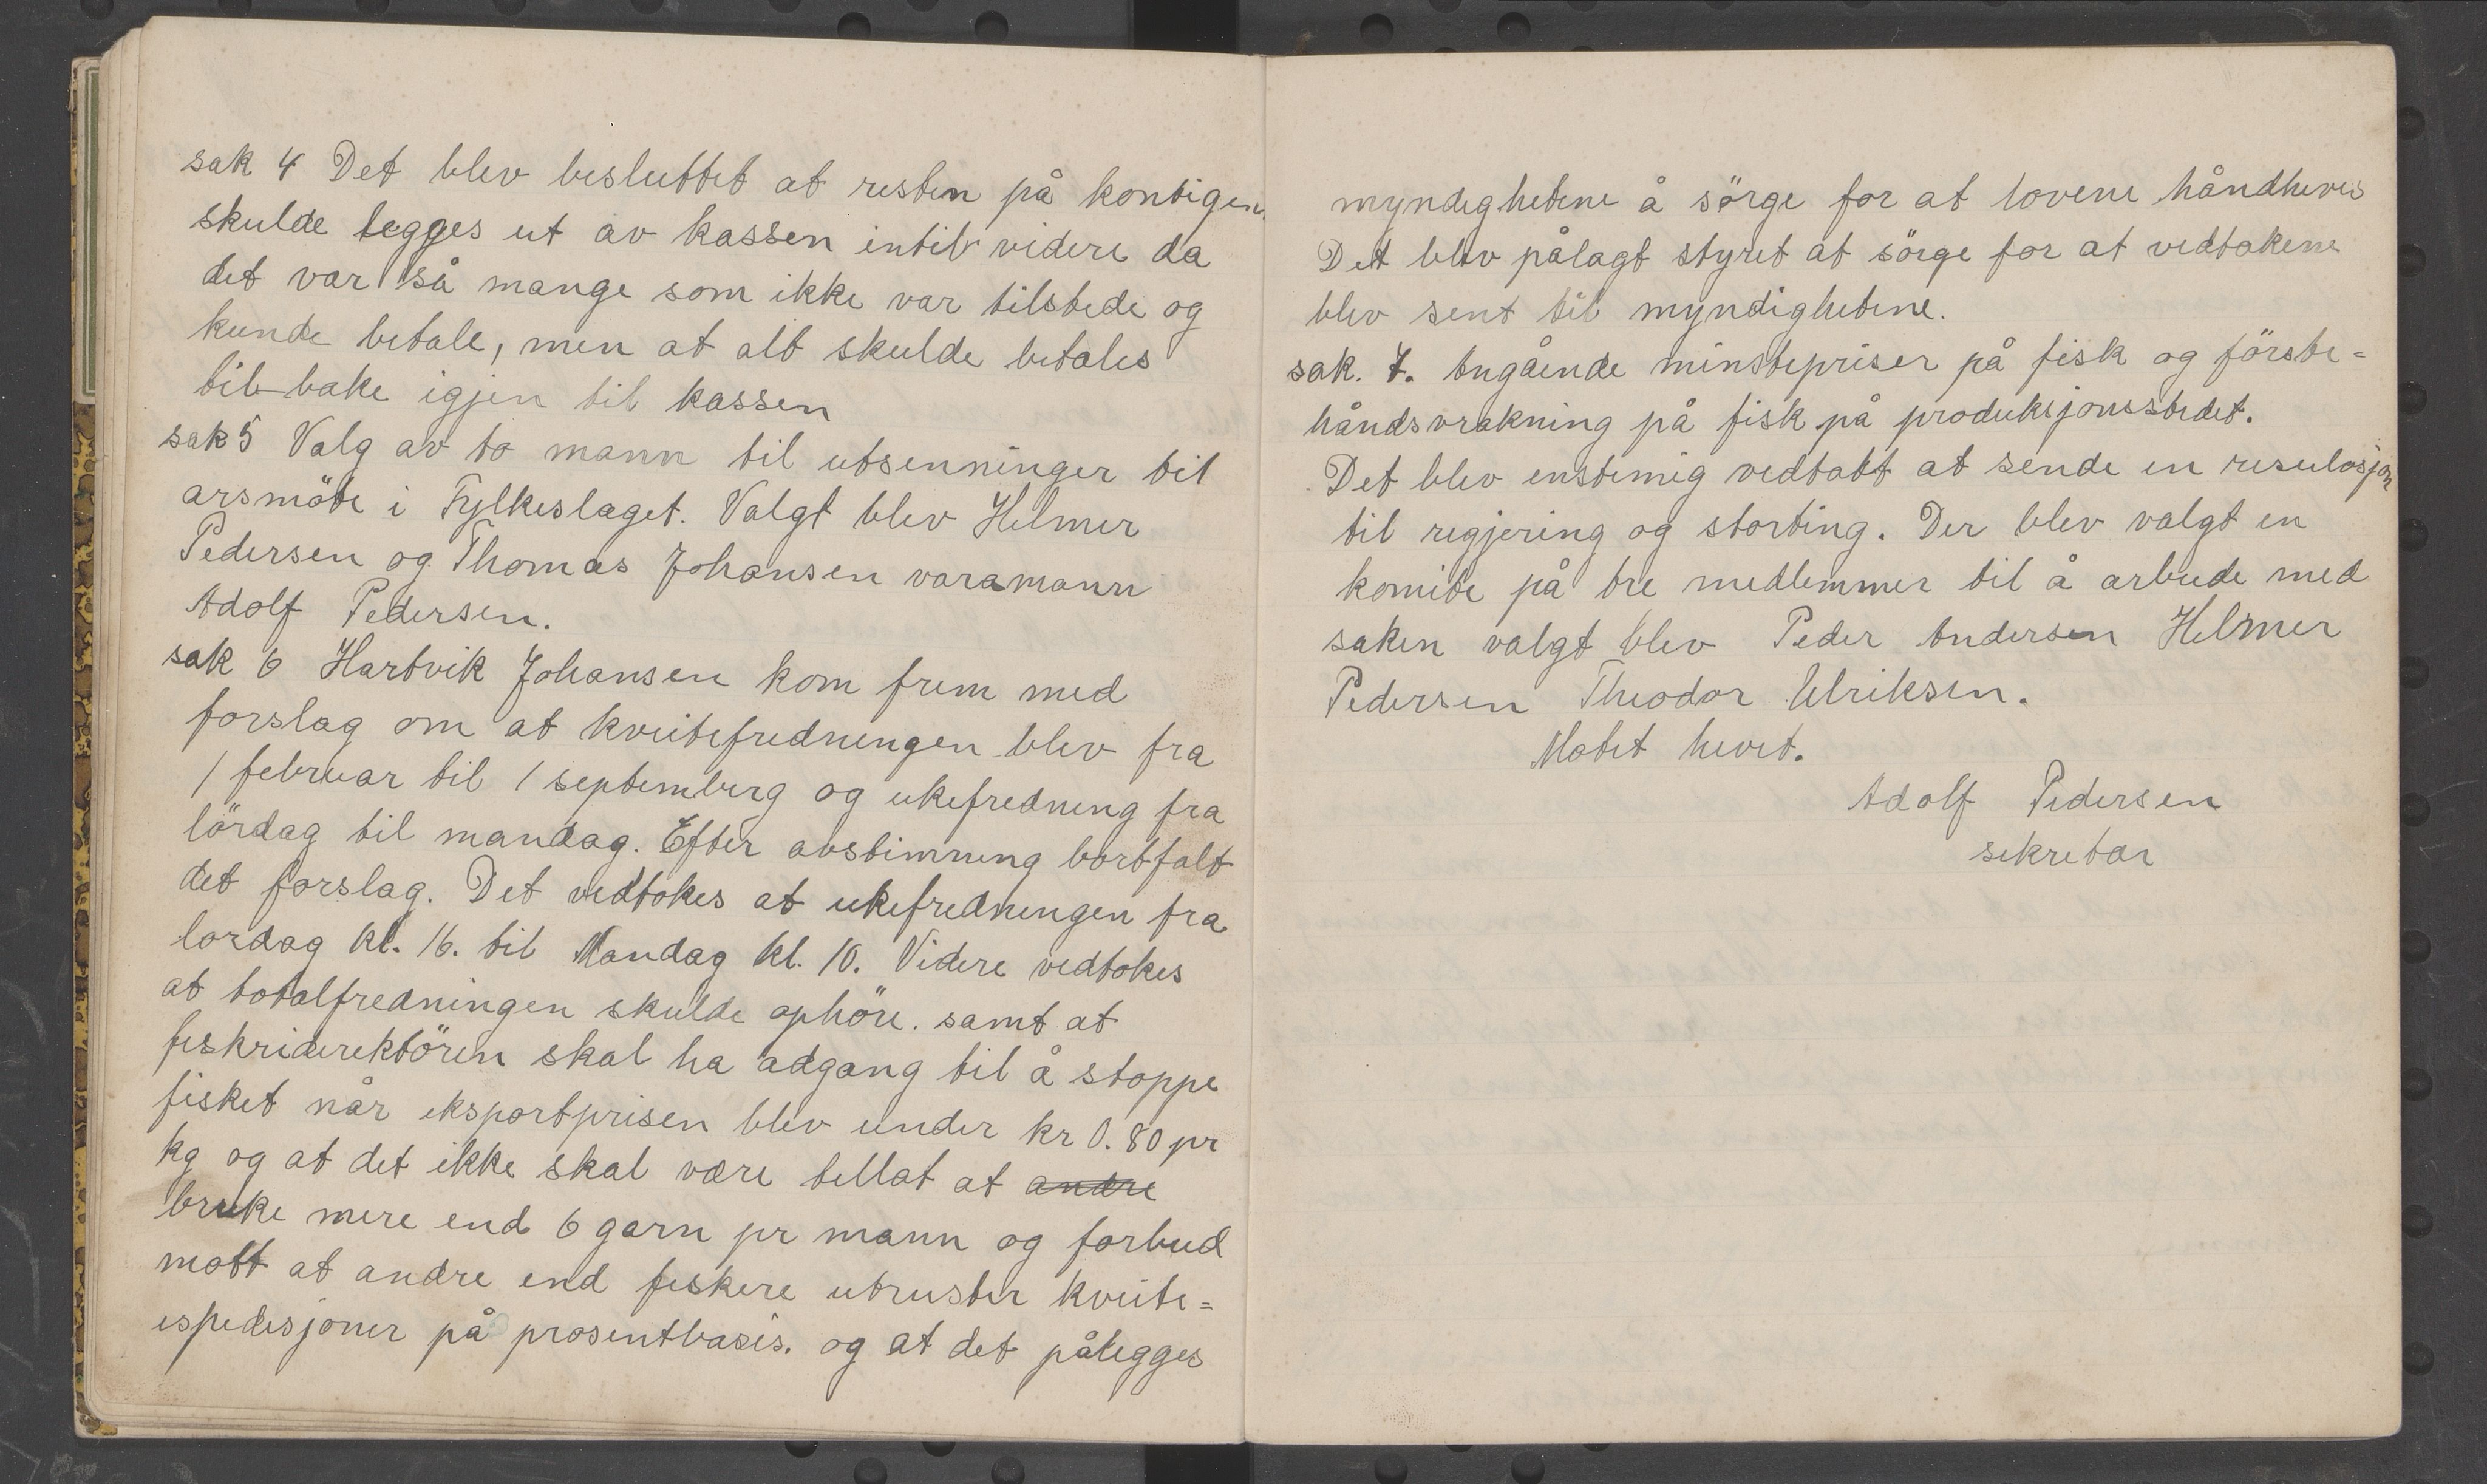 sak 4 Det blev besluttet at resten på kontigen
skulde legges ut av kassen intil videre da
det var så mange som ikke var tilstede og
kunde betale, men at alt skulde betales
tilbake igjen til kassen
sak 5 Valg av to mann til utsenninger til
arsmöte i Fylkeslaget. Valgt blev Helmer
Pedersen og Thomas Johansen varamann
Adolf Pedersen.
sak 6 Hartvik Johansen kom frem med
forslag om at kveitefredningen blev fra
1 februar til 1 septemberg og ukefredning fra
lördag til mandag. Efter avstimning bortfalt
det forslag. Det vedtokes at ukefredningen fra
lordag kl. 16. til Mandag kl. 10. Videre vedtokes
at totalfredningen skulde ophöre. samt at
fiskridirektören skal ha adgang til å stoppe
fisket når eksportprisen blev under kr 0.80 pr
kg og at det ikke skal være tillat at andre
bruke mere end 6 garn pr mann og forbud
mott at andre end fiskere utruster kveite=
espedisjoner på prosentbasis. og at det pålegges
myndighetene å sörge for at lovene håndheves
Det blev pålagt styret at sörge for at vedtakene
blev sent til myndighetene.
sak. 7. Angående minstepriser på fisk og förste=
håndsvrakning på fisk på produksjonsstedet.
Det blev enstemig vedtatt at sende en resulosjon
til regjering og storting. Der blev valgt en
komite på tre medlemmer til å arbeide med
saken valgt blev Peder Andersen Helmer
Pedersen Theodor Ulriksen.
Motet hevet.
Adolf Pedersen
sekretær